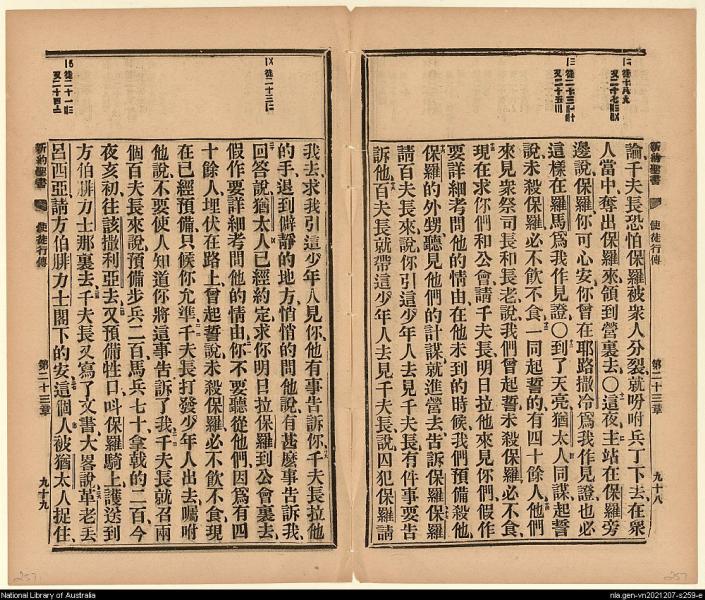 新約聖書 使徒行傳 第二十三章 九十八
論千夫長恐怕保羅被衆人分裂就吩咐兵丁下去在衆
人當中奪出保羅來領到營裏去〇這夜主站在保羅旁
邊說保羅你可心安你曾在耶路撒冷爲我作見證也必
這樣在羅馬爲我作見證〇到了天亮猶太人同謀起誓
說未殺保羅必不飲不食一同起誓的有四十餘人他們
來見衆祭司長和長老說我們曾起誓未殺保羅必不食
現在求你們和公會請千夫長明日拉他來見你們假作
要詳細考問他的情由在他未到的時候我們預備殺他
保羅的外甥聽見他們的計謀就進營去告訴保羅保羅
請百夫長來說你引這少年人去見千夫長有件事要告
訴他百夫長就帶這少年人去見千夫長說囚犯保羅請
我去求我引這少年人見你他有事告訴你千夫長拉他
的手退到僻靜的地方悄悄的問他說有甚麽事告訴我
回答說猶太人已經約定求你明日拉保羅到公會裏去
假作要詳細考問他的情由你不要聽從他們因爲有四
十餘人埋伏在路上曾起誓說未殺保羅必不飲不食現
在已經預備只候你允準千夫長打發少年人出去囑咐
他說不要使人知道你將這事告訴了我千夫長就召兩
個百夫長來說預備步兵二百馬兵七十拿戟的二百今
夜亥初往該撒利亞去又預備牲口呌保羅騎上護送到
方伯腓力士那裏去千夫長又寫了文書大畧說革老丢
呂西亞請方伯腓力士閣下的安這個人被猶太人捉住
新約聖書 使徒行傳 第二十三章 九十九
257
257
National Library of Australia
nla.gen-vn2021207-s259-e